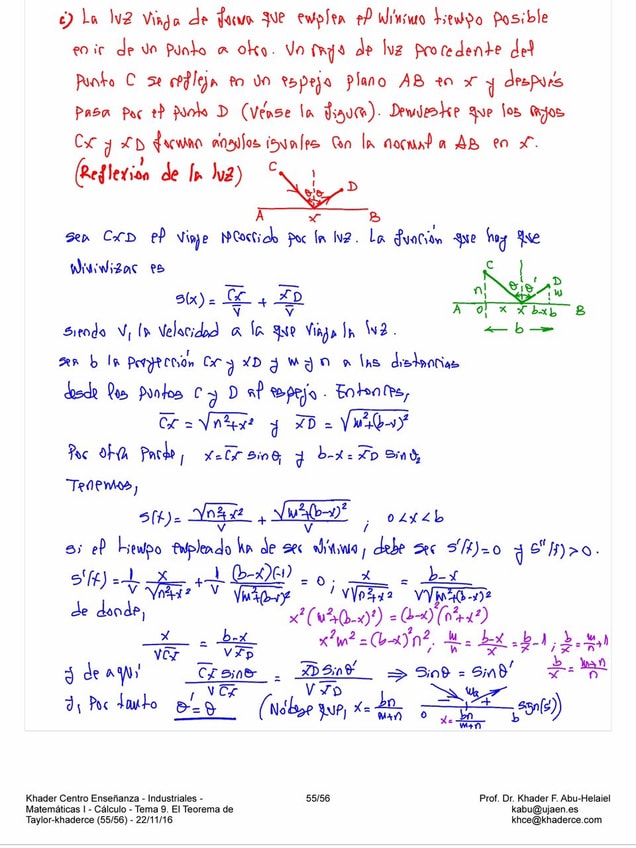 i) La luz viaja de forma que emplea el mínimo tiempo posible
en ir de un punto a otro. Un rayo de luz procedente del
punto C se refleja en un espejo plano AB en x y después
pasa por el punto D (Véase la figura). Demuestre que los rayos
Cx y xD forman ángulos iguales con la normal a AB en x.
(Reflexión de la luz)
C θ θ D
A x B
Sea CxD el viaje recorrido por la luz. La función que hay que
minimizar es
C θ θ' D
n m
A 0 x x b-x b B
b
S(x) = Cx/V + xD/V
siendo V, la velocidad a la que viaja la luz.
Sea b la proyección Cx y xD y m y n a las distancias
desde los puntos C y D al espejo. Entonces,
Cx = √(n²+x²) y xD = √(m²+(b-x)²)
Por otra parte, x = Cx sinθ, y b-x = xD sinθ₂
Tenemos,
S(x) = √(n²+x²)/V + √(m²+(b-x)²)/V ; 0<x<b
Si el tiempo empleado ha de ser mínimo, debe ser S'(x)=0 y S''(x)>0.
S'(x) = 1/V x/√(n²+x²) + 1/V (b-x)(-1)/√(m²+(b-x)²) = 0 ; x/(V√(n²+x²)) = (b-x)/(V√(m²+(b-x)²))
de donde, x²(m²+(b-x)²) = (b-x)²(n²+x²)
x/(V Cx) = (b-x)/(V xD) x²m² = (b-x)²n² ; m/n = (b-x)/x = b/x - 1 ; b/x = m/n + 1
b/x = (m+n)/n
y de aquí Cx sinθ/(V Cx) = xD sinθ'/(V xD) ⇒ sinθ = sinθ'
y, por tanto θ' = θ (Nótese que, x = bn/(m+n)
0 - min + b sgn(s'))
x = bn/(m+n)
Khader Centro Enseñanza - Industriales -
Matemáticas I - Cálculo - Tema 9. El Teorema de
Taylor-khaderce (55/56) - 22/11/16
55/56
Prof. Dr. Khader F. Abu-Helaiel
kabu@ujaen.es
khce@khaderce.com